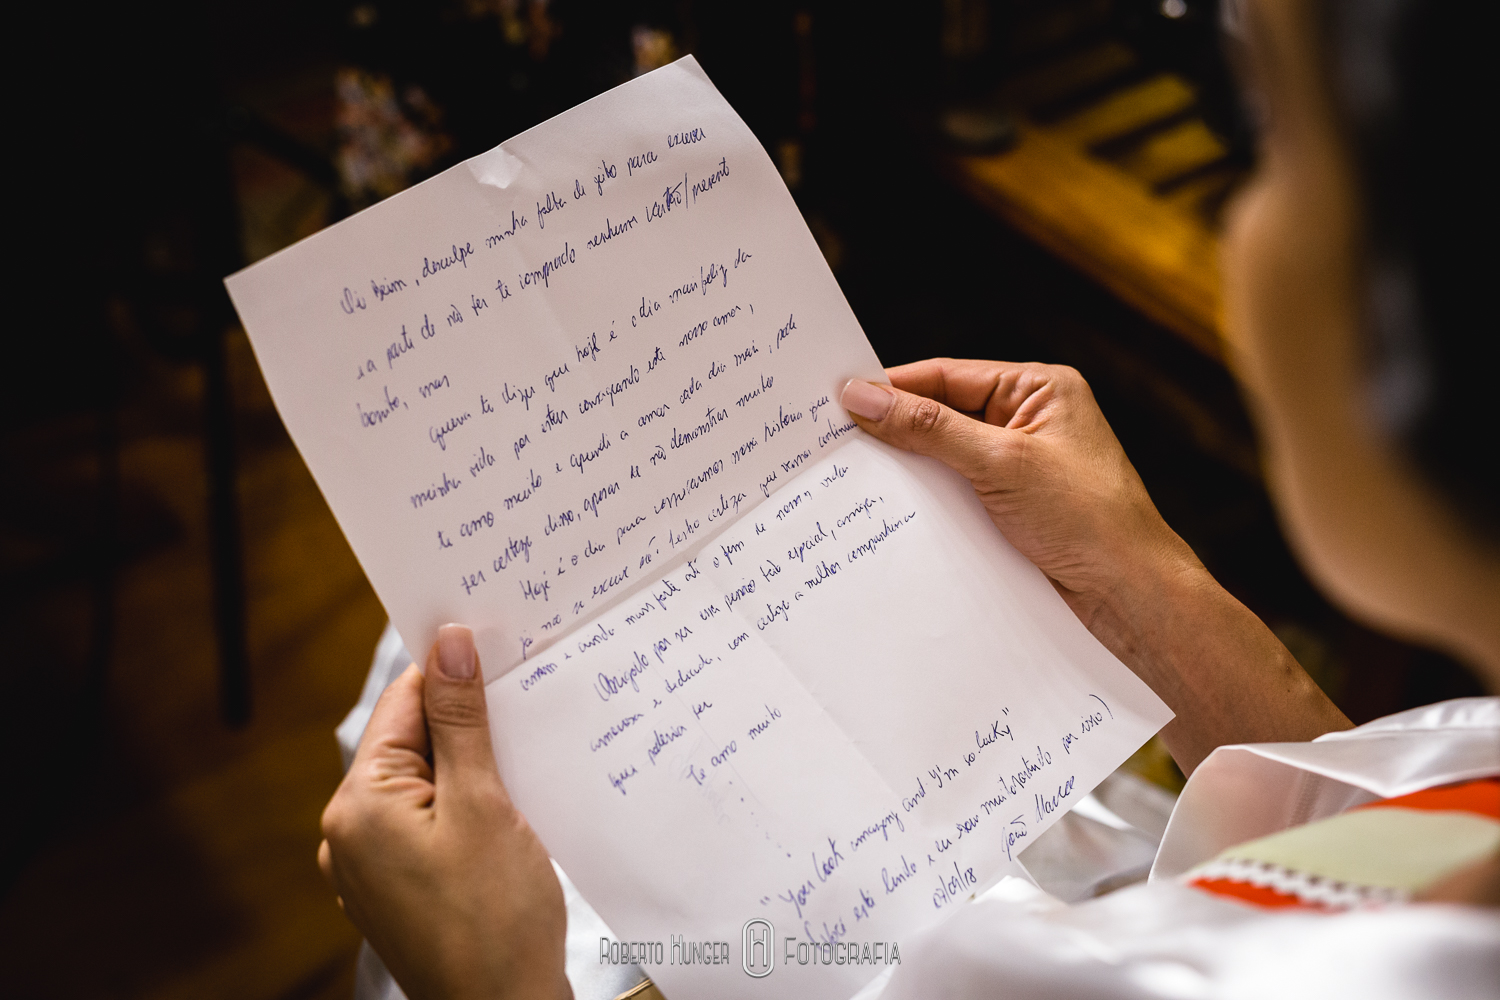 Oi Beim, desculpe minha falta de jeito para escrever
e a parte de não ter te comprado nenhum cartão/present
bonito, mas
queria te dizer que hoje é o dia mais feliz da
minha vida por estar consagrando este nosso amor,
te amo muito e aprendi a amar cada dia mais, pode
ter certeza disso, apesar de não demonstrar muito
Hoje é o dia para começarmos nossa história que
já não se exclui tenho certeza que vamos continuar
ainda mais forte até o fim de nossa vida
Obrigado por ser essa pessoa tão especial, amiga,
amorosa e dedicada, com certeza a melhor companheira
que poderia ter
Te amo muito
"You look amazing and I'm so lucky"
(você está linda e eu sou muito sortudo por isso)
07/09/18 João Marcos
ROBERTO HUNGER H FOTOGRAFIA